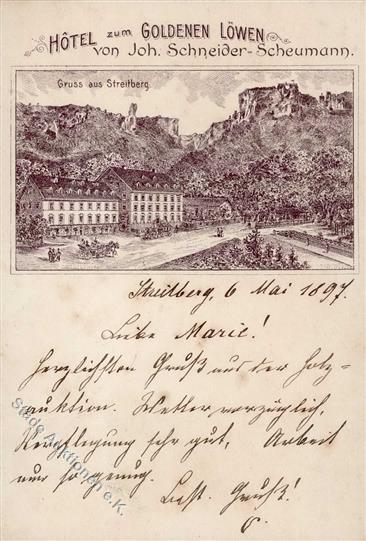 HÔTEL zum GOLDENEN LÖWEN
von Joh. Schneider-Scheumann.
Gruss aus Streitberg.
Streitberg, 6 Mai 1897.
Liebe Marie!
Herzlichsten Gruß aus der Holz=
auktion. Wetter vorzüglich,
Verpflegung sehr gut, Arbeit
nur so genug.
Best. Gruß!
Stade Auktionen e.K.